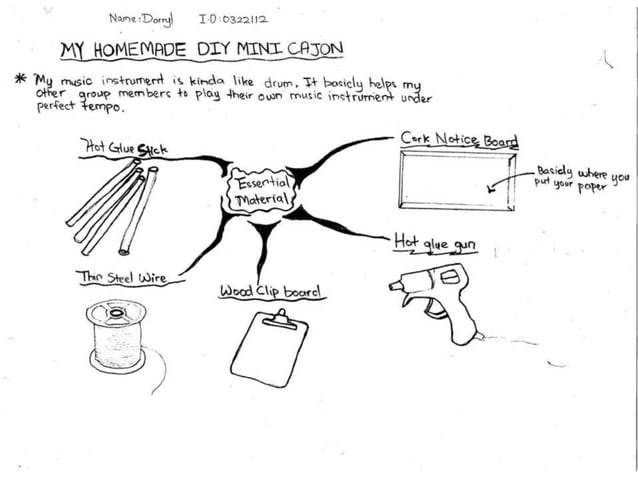 Name: Darryl I.D: 0322112
MY HOMEMADE DIY MINI CAJON
* My music instrument is kinda like drum. It basicly helps my
other group members to play their own music instrument under
perfect tempo.
Hot Glue Stick
Cork Notice Board
Basicly where you
put your paper
Essential
Material
Hot glue gun
Thin Steel Wire
Wood Clip board